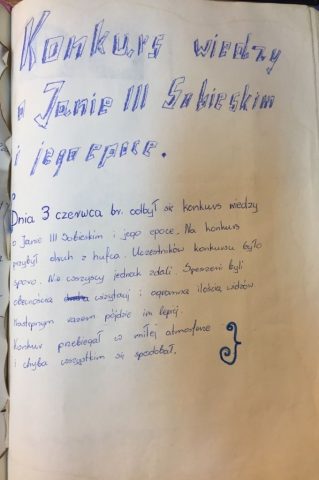 Konkurs wiedzy
o Janie III Sobieskim
i jego epoce.
Dnia 3 czerwca br. odbył się konkurs wiedzy
o Janie III Sobieskim i jego epoce. Na konkurs
przybył druh z hufca. Uczestników konkursu było
sporo. Nie wszyscy jednak zdali. Speszeni byli
obecnością wizytacji i ogromną ilością widzów.
Następnym razem pójdzie im lepiej.
Konkurs przebiegał w miłej atmosferze
i chyba wszystkim się spodobał.